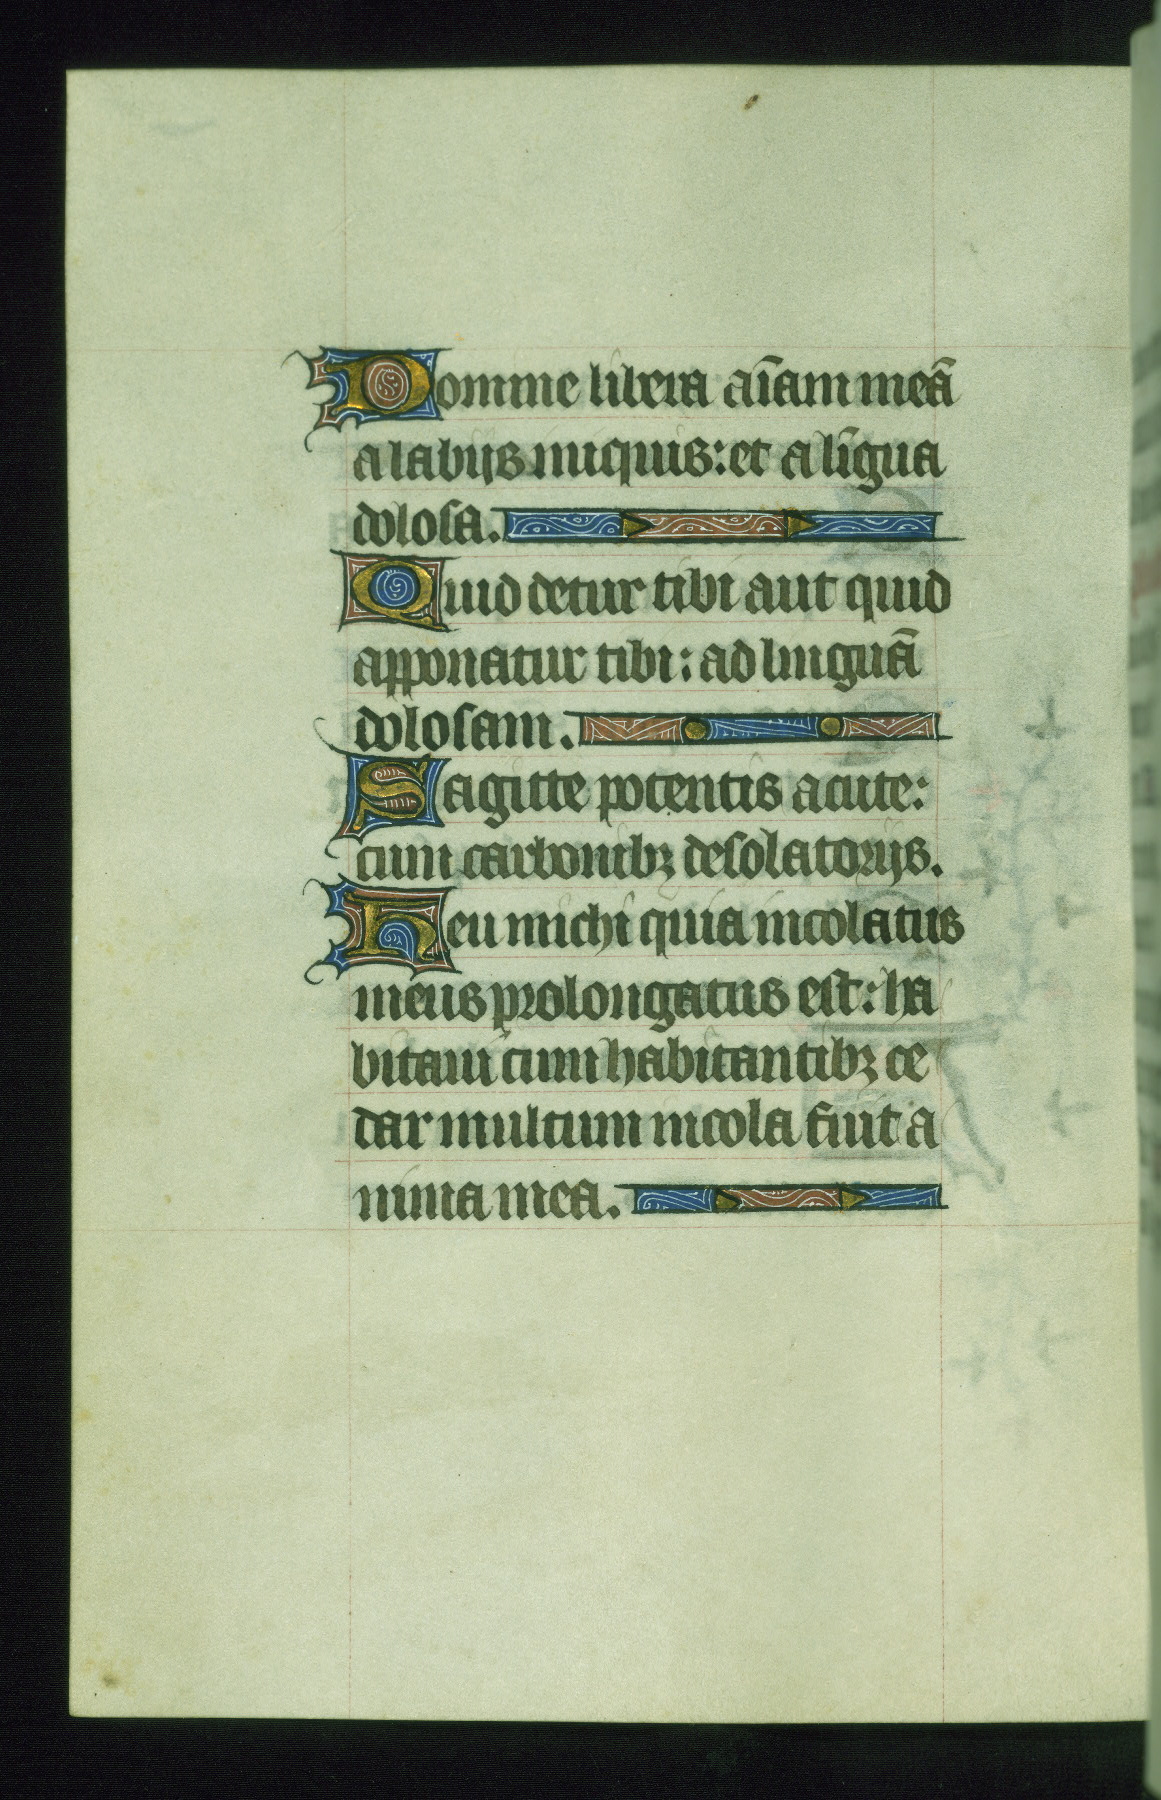 Domine libera aīam meā
a labijs iniquis: et a līgua
dolosa.
Quid detur tibi aut quid
apponatur tibi: ad linguā
dolosam.
Sagitte potentis acute:
cum carbonibꝫ desolatorijs.
Heu michi quia incolatus
meus prolongatus est: ha
bitaui cum habitantibꝫ ce
dar multum incola fuit a
nima mea.